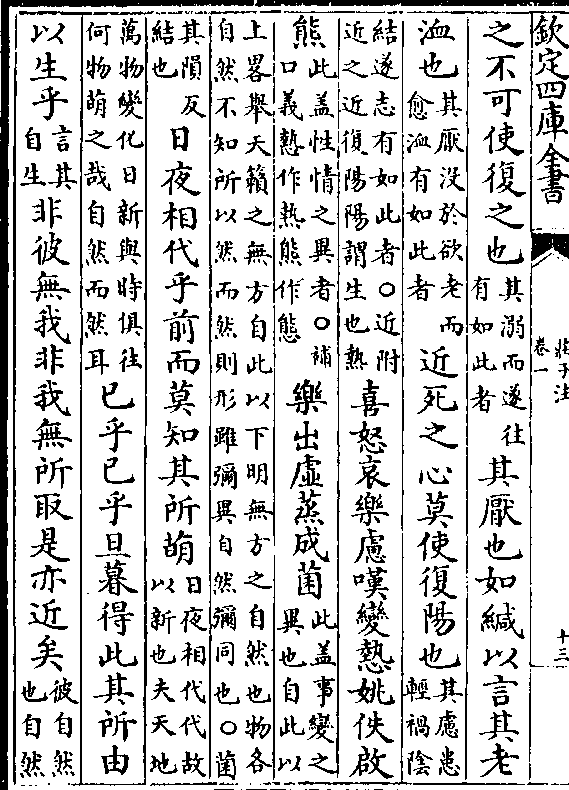 欽定四庫全書
莊子注
卷一
十三
之不可使復之也
其溺而遂往
有如此者
其厭也如緘以言其老
洫也
其厭没於欲老而
愈洫有如此者
近死之心莫使復陽也
其慮患
輕禍陰
結遂志有如此者○近附
近之近復陽陽謂生也慹
喜怒哀樂慮嘆變慹姚佚啟
熊
此盖性情之異者○補
口義慹作熱熊作態
樂出虛蒸成菌
此盖事變之
異也自此以
上畧舉天籟之無方自此以下明無方之自然也物各
自然不知所以然而然則形雖彌異自然彌同也○菌
其隕反
結也
日夜相代乎前而莫知其所萌
日夜相代代故
以新也夫天地
萬物變化日新與時俱往
何物萌之哉自然而然耳
已乎已乎旦暮得此其所由
以生乎
言其
自生
非彼無我非我無所取是亦近矣
彼自然
也自然